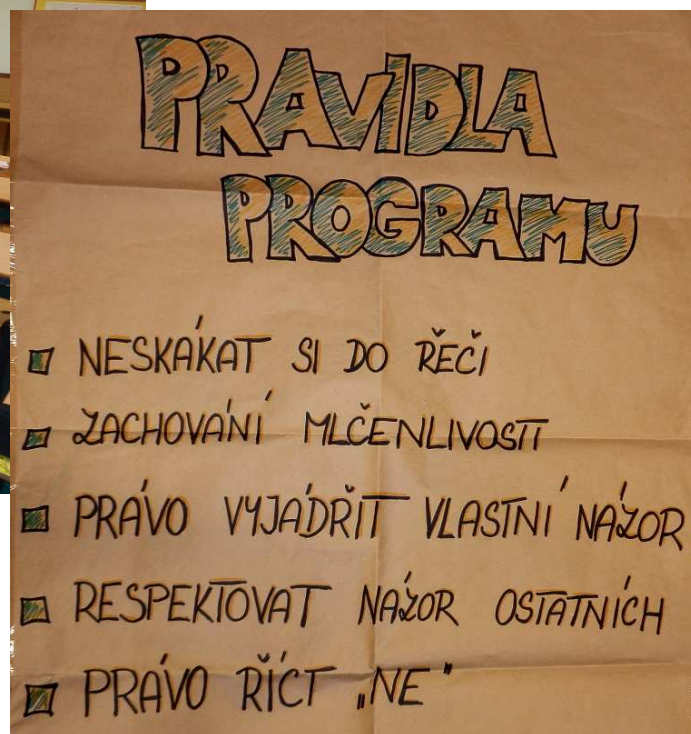 PRAVIDLA
PROGRAMU
NESKÁKAT SI DO ŘEČI
ZACHOVÁNÍ MLČENLIVOSTI
PRÁVO VYJÁDŘIT VLASTNÍ NÁZOR
RESPEKTOVAT NÁZOR OSTATNÍCH
PRÁVO ŘÍCT „NE"